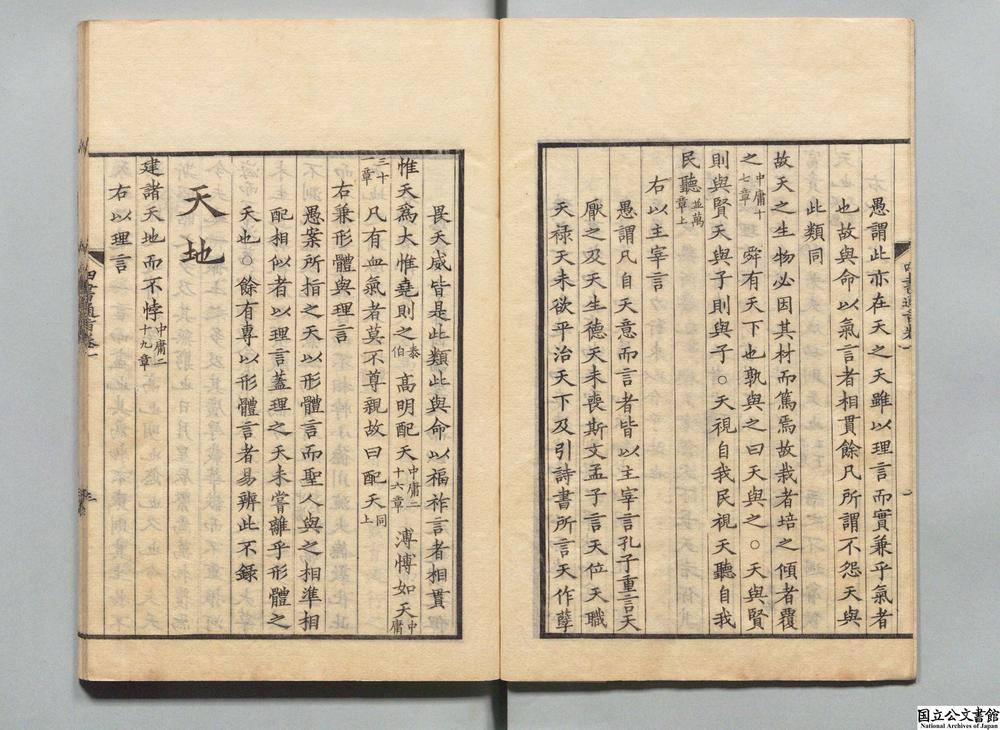 愚謂此亦在天之天雖以理言而實兼乎氣者
也故與命以氣言者相貫餘凡所謂不怨天與
此類同
故天之生物必因其材而篤焉故栽者培之傾者覆
之中庸十七章 舜有天下也孰與之曰天與之○天與賢
則與賢天與子則與子○天視自我民視天聽自我
民聽並萬章上
右以主宰言
愚謂凡自天意而言者皆以主宰言孔子重言天
厭之及天生德天未喪斯文孟子言天位天職
天祿天未欲平治天下及引詩書所言天作孽
畏天威皆是此類此與命以福祚言者相貫
惟天爲大惟堯則之泰伯 高明配天中庸二十六章 溥愽如天中庸
三十一章 凡有血氣者莫不尊親故曰配天同上
右兼形體與理言
愚案所指之天以形體言而聖人與之相準相
配相似者以理言蓋理之天未嘗離乎形體之
天也○餘有專以形體言者易辨此不錄
天地
建諸天地而不悖中庸二十九章
右以理言
四書通旨卷一
国立公文書館
National Archives of Japan